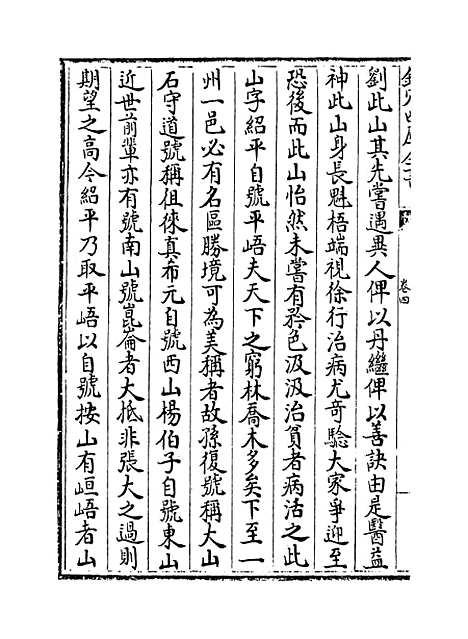 劉此山其先嘗遇異人俾以丹繼俾以善訣由是醫益
神此山身長魁梧端視徐行治病尤奇驗大家爭迎至
恐後而此山怡然未嘗有矜色汲汲治貧者病活之此
山字紹平自號平峿夫天下之窮林喬木多矣下至一
州一邑必有名區勝境可為美稱者故孫復號稱大山
石守道號稱徂徠真希元自號西山楊伯子自號東山
近世前輩亦有號南山號崑崙者大抵非張大之過則
期望之高今紹平乃取平峿以自號按山有峘峿者山
卷四